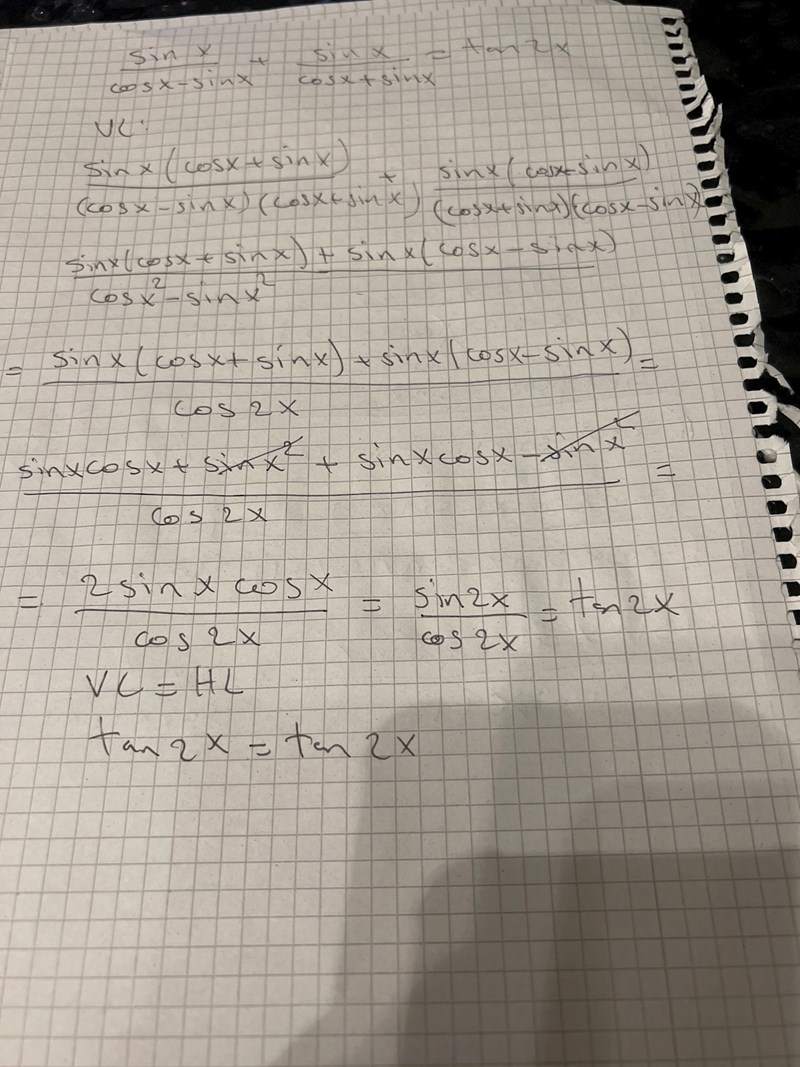 sin x / (cosx - sinx) + sin x / (cosx + sinx) = tan 2x
VL:
sin x (cosx + sinx) / (cosx - sinx)(cosx + sinx) + sinx (cosx - sinx) / (cosx + sinx)(cosx - sinx)
sinx(cosx + sinx) + sinx(cosx - sinx) / cosx² - sinx²
= sinx(cosx + sinx) + sinx(cosx - sinx) / cos 2x =
sinxcosx + sinx² + sinxcosx - sinx² / cos 2x =
= 2 sinx cosx / cos 2x = sin2x / cos 2x = tan 2x
VL = HL
tan 2x = tan 2x